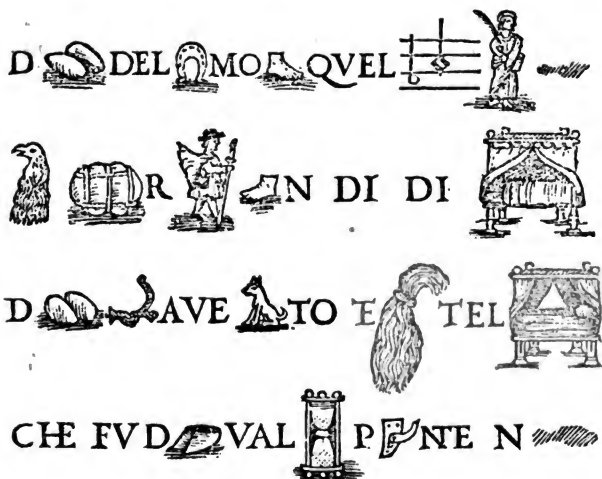 D DEL MO QVEL
R N DI DI
D AVE TO E TEL
CHE FVD VAL P NTE N